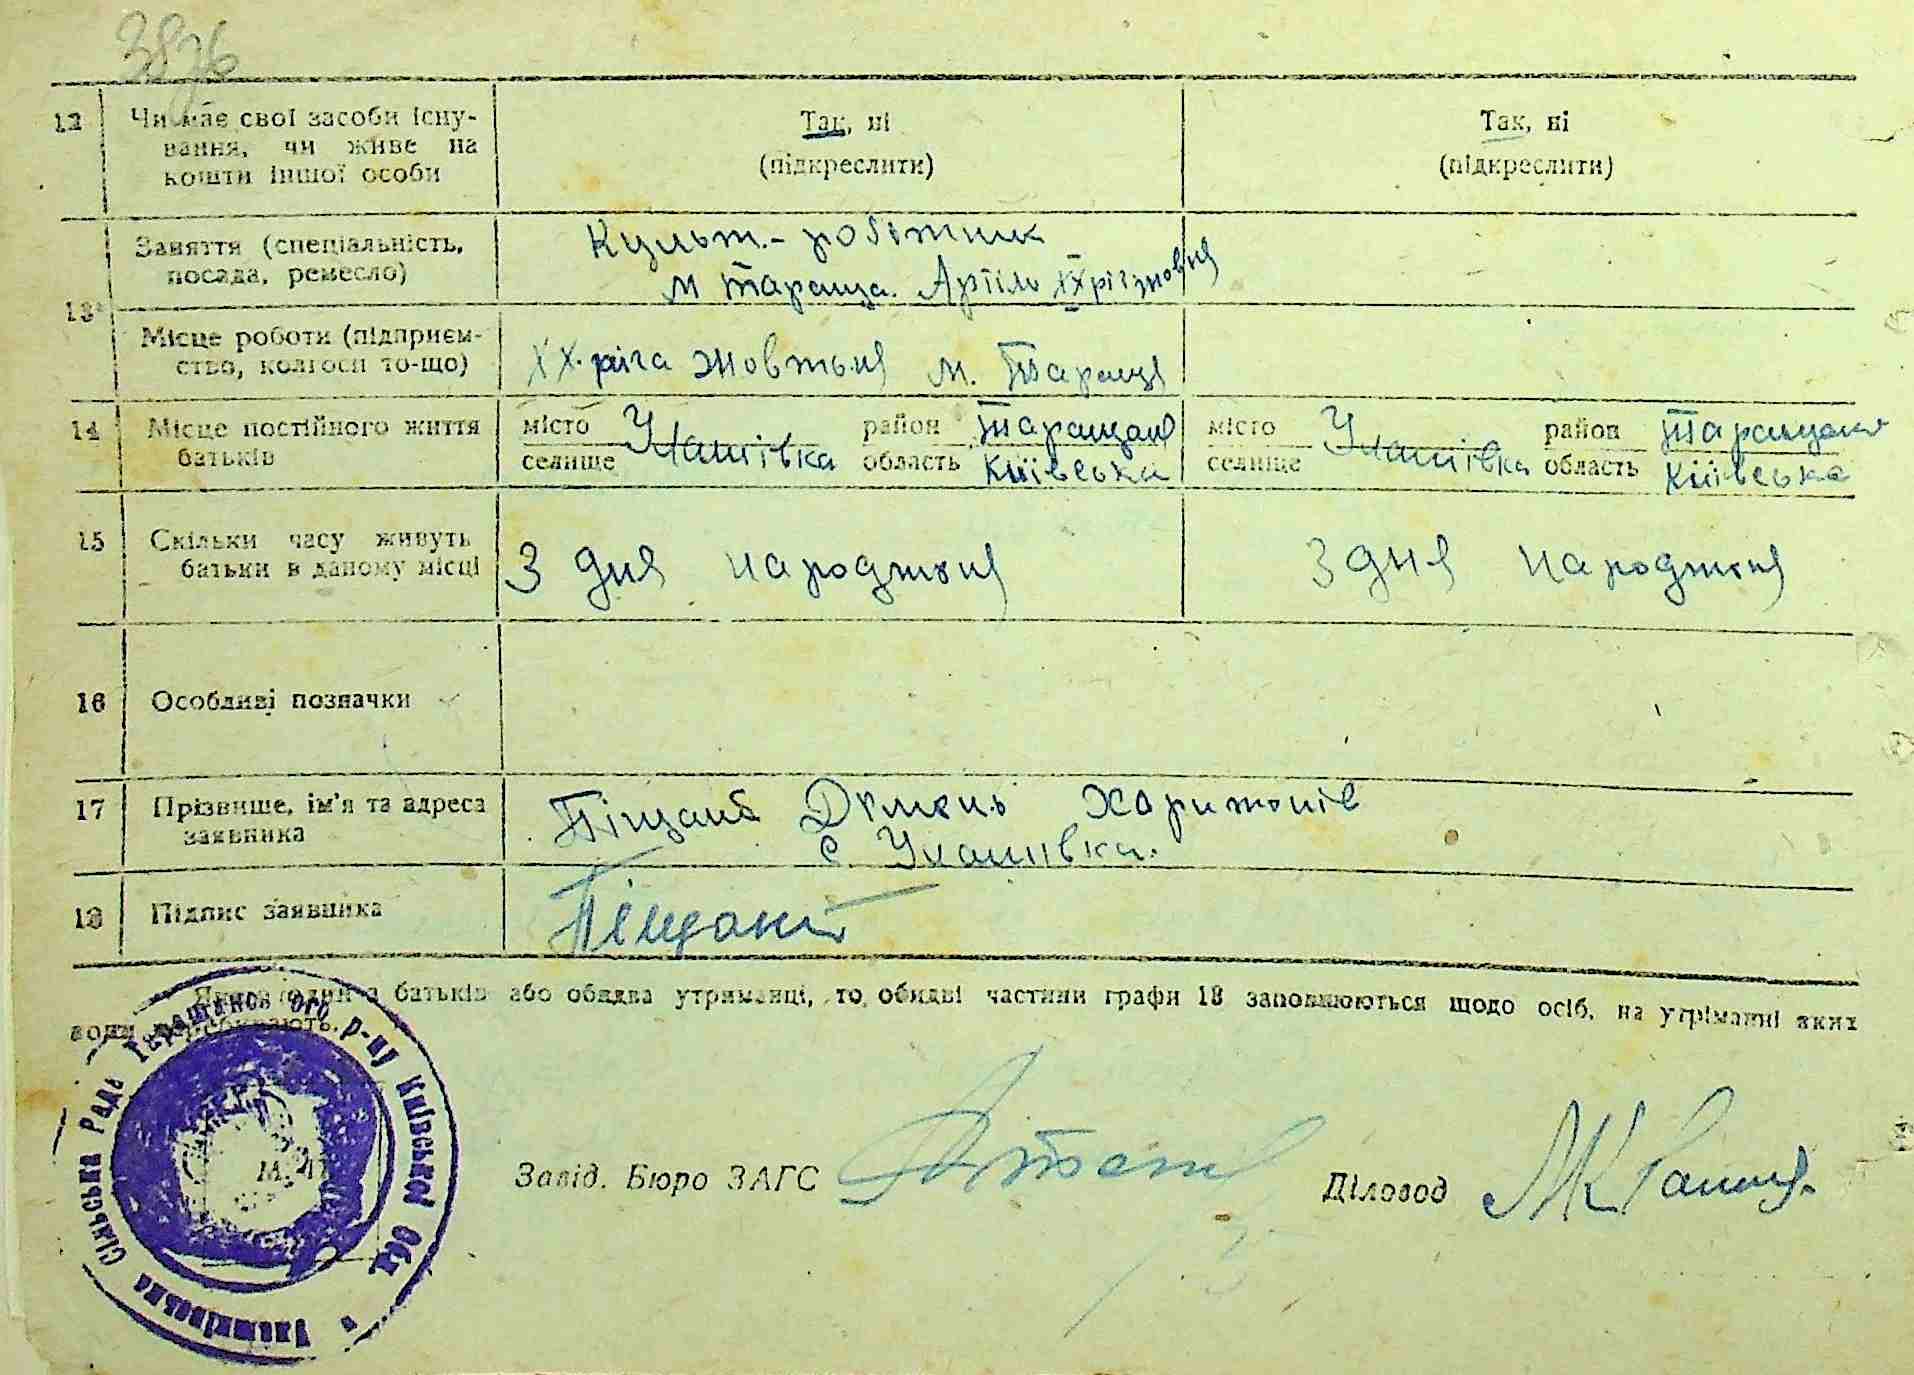 3876
12 Чи має свої засоби існу-
вання, чи живе на
кошти іншої особи
Так, ні
(підкреслити)
Так, ні
(підкреслити)
13 Заняття (спеціальність,
посада, ремесло)
Культ.- робітник
м Тараща. Артіль ХХ річ жовтня
Місце роботи (підприєм-
ство, колгосп то-що)
ХХ-річа жовтня м. Тараща
14 Місце постійного життя
батьків
місто
селище
район Таращан
область Київська
місто
селище
район
область Київська
15 Скільки часу живуть
батьки в даному місці
З дня народженя
З дня народженя
16 Особливі позначки
17 Прізвище, ім'я та адреса
заявника
Піщаній
с.
18 Підпис заявника
Піщаний
один з батьків або обидва утриманці, то обидві частини графи 13 заповнюються щодо осіб, на утриманні яких
вони перебувають.
Сільська Рада Таращанського р-ну Київської Обл
М. П.
Завід. Бюро ЗАГС
Діловод